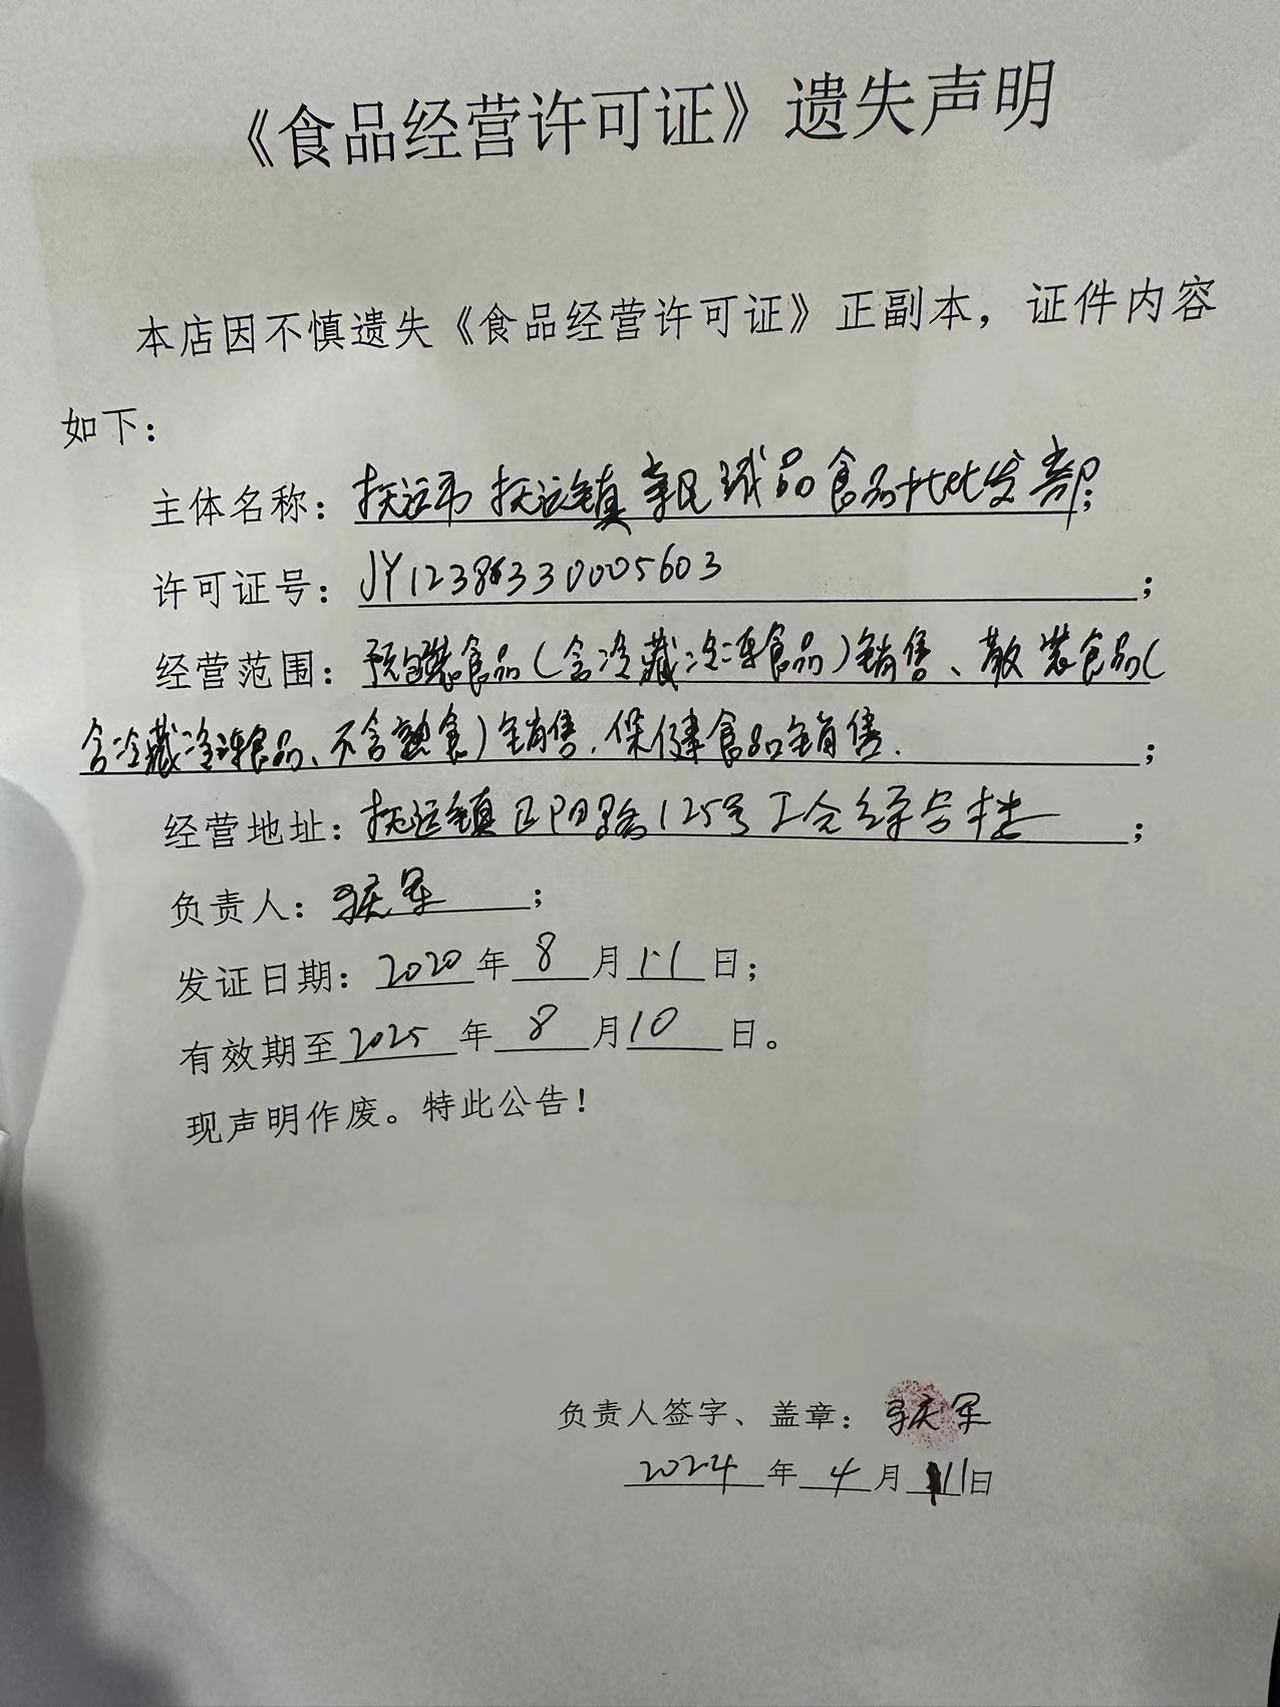 《食品经营许可证》遗失声明
本店因不慎遗失《食品经营许可证》正副本，证件内容
如下：
主体名称：抚远市抚远镇亲民诚品食品批发部；
许可证号：JY12386330005603；
经营范围：预包装食品(含冷藏冷冻食品)销售、散装食品(
含冷藏冷冻食品、不含熟食)销售.保健食品销售.；
经营地址：抚远镇正阳路125号工会综合楼；
负责人：庆军；
发证日期：2020年8月11日；
有效期至2025年8月10日。
现声明作废。特此公告！
负责人签字、盖章：庆军
2024年4月11日